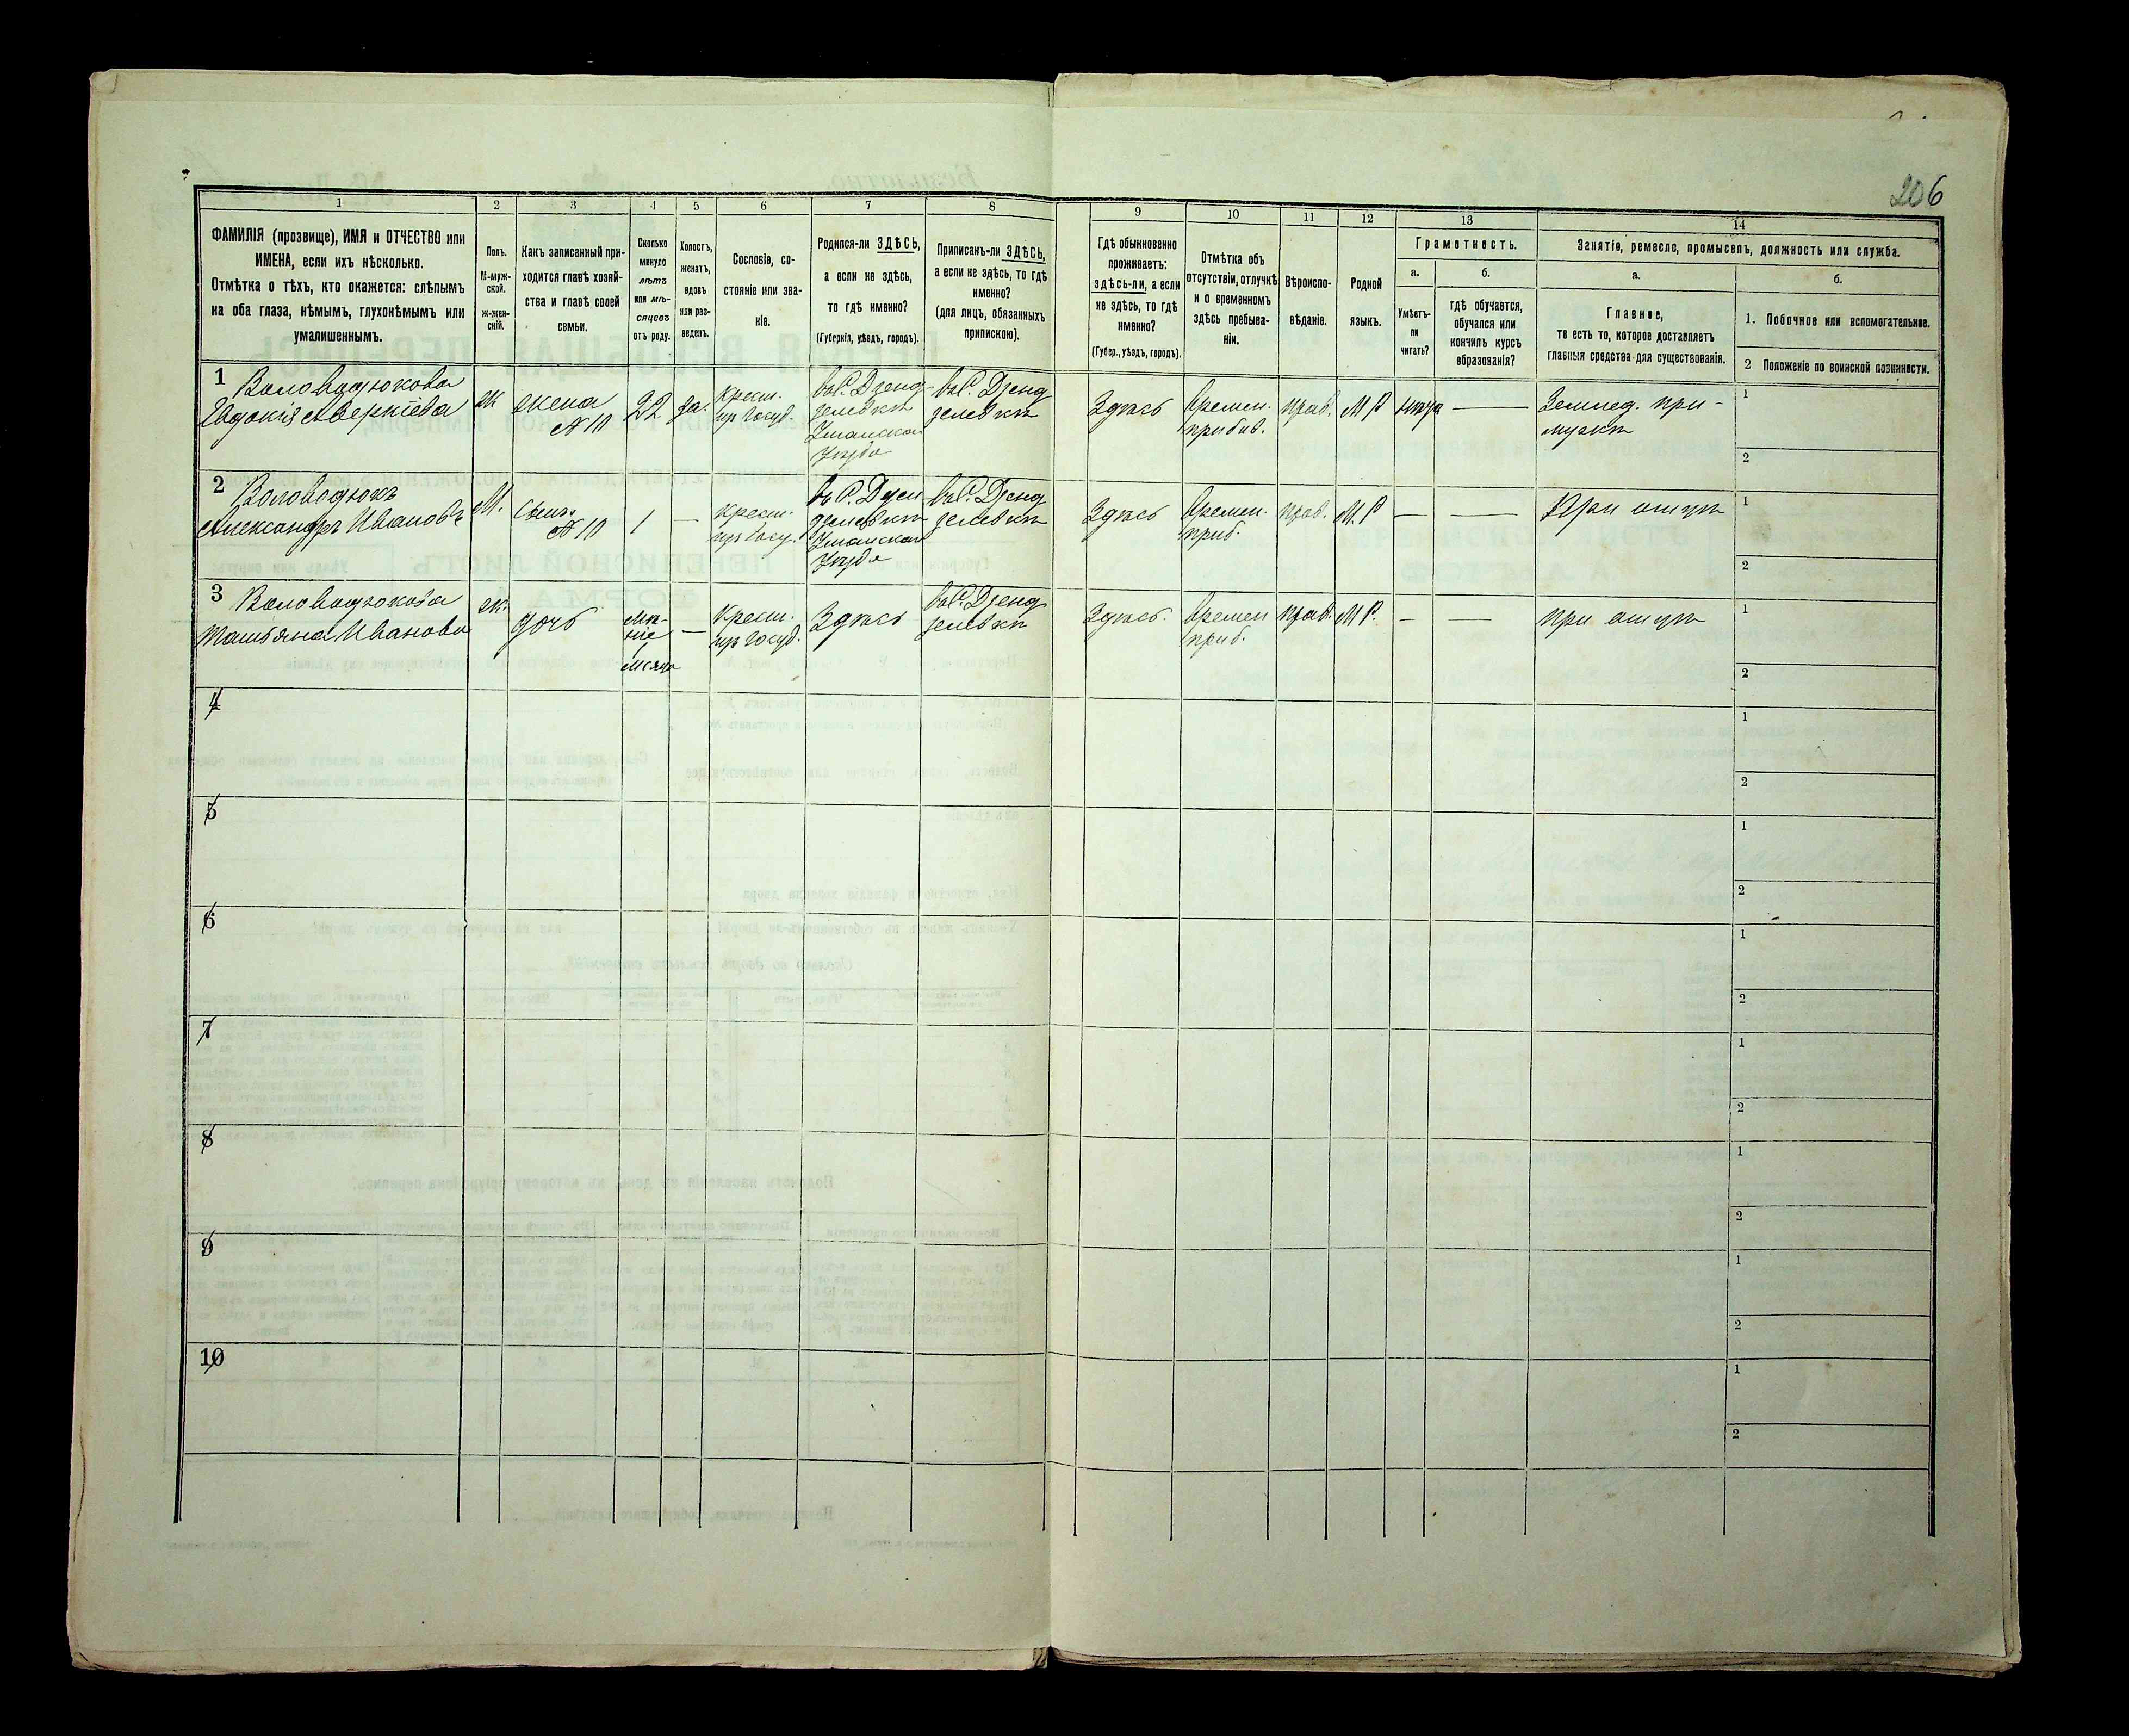 206
1
2
3
4
5
6
7
8
9
10
11
12
13
14
ФАМИЛІЯ (прозвище), ИМЯ и ОТЧЕСТВО или
ИМЕНА, если ихъ нѣсколько.
Отмѣтка о тѣхъ, кто окажется: слѣпымъ
на оба глаза, нѣмымъ, глухонѣмымъ или
умалишеннымъ.
Полъ.
М-муж-
ской.
Ж-жен-
скій.
Какъ записанный при-
ходится главѣ хозяй-
ства и главѣ своей
семьи.
Сколько
минуло
лѣтъ
или мѣ-
сяцевъ
отъ роду.
Холостъ,
женатъ,
вдовъ
или раз-
веденъ.
Сословіе, со-
стояніе или зва-
ніе.
Родился-ли ЗДѢСЬ,
а если не здѣсь,
то гдѣ именно?
(Губернія, уѣздъ, городъ).
Приписанъ-ли ЗДѢСЬ,
а если не здѣсь, то гдѣ
именно?
(для лицъ, обязанныхъ
припискою).
Гдѣ обыкновенно
проживаетъ:
здѣсь-ли, а если
не здѣсь, то гдѣ
именно?
(Губер., уѣздъ, городъ).
Отмѣтка объ
отсутствіи, отлучкѣ
и о временномъ
здѣсь пребыва-
ніи.
Вѣроиспо-
вѣданіе.
Родной
языкъ.
Грамотность.
а.
Умѣетъ-
ли
читать?
б.
гдѣ обучается,
обучался или
кончилъ курсъ
образованія?
Занятіе, ремесло, промыселъ, должность или служба.
а.
Главное,
то есть то, которое доставляетъ
главныя средства для существованія.
б.
1. Побочное или вспомогательное.
2 Положеніе по воинской повинности.
1 Воловодюкова
Евдокія Аверкіева
ж
жена
№ 10
22
за.
крест.
изъ госуд.
въ С. Дзенд-
зелевкѣ
Уманскаго
Уѣзда
въ С. Дзенд
зелевкѣ
Здѣсь
Времен.
прибыв.
прав.
М Р
нѣтъ
—
Землед. при-
мужѣ
1
2
2 Воловодюкъ
Александръ Ивановъ
М.
Сынъ
№ 10
1
—
крест.
изъ госу.
въ С. Дзен
дзелевкѣ
Уманскаго
Уѣзда
въ С. Дзенд
зелевкѣ
Здѣсь
Времен.
приб.
прав.
М. Р
—
—
При отцѣ
1
2
3 Воловодюкова
Татьяна Иванова
ж.
дочь
1
—
Крест.
изъ госуд.
Здѣсь
въ С. Дзенд
зелевкѣ
Здѣсь.
Времен
приб.
прав.
М Р.
—
—
при отцѣ
1
2
4
1
2
5
1
2
6
1
2
7
1
2
8
1
2
9
1
2
10
1
2